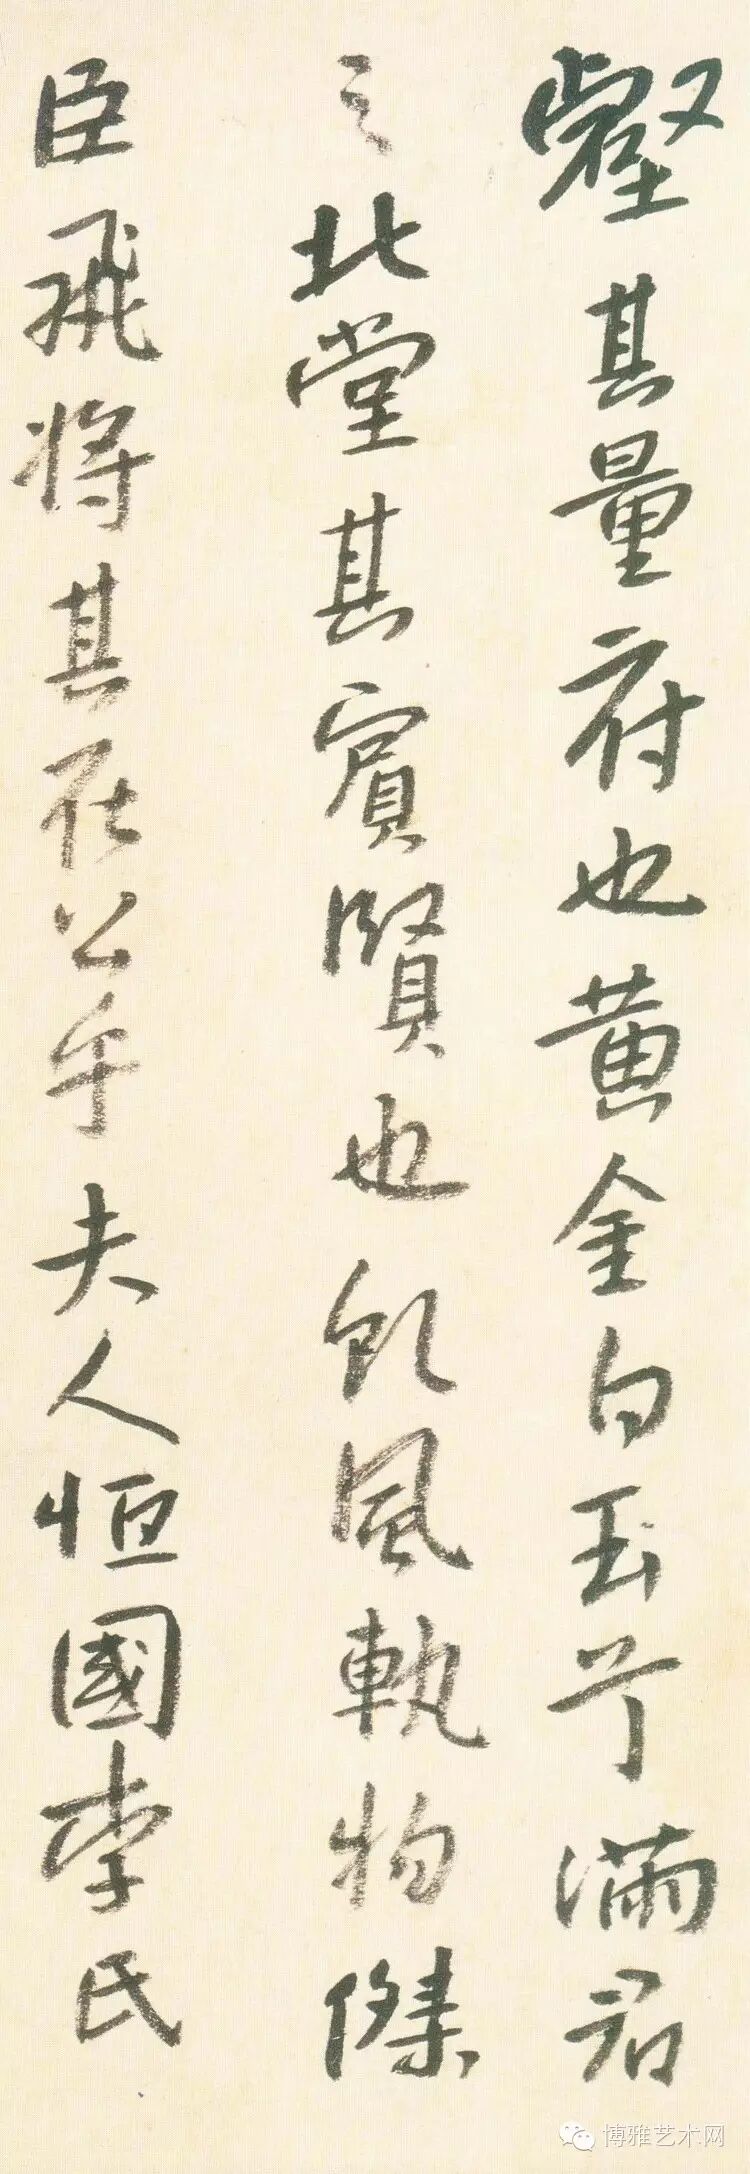 壑其量府也黄金白玉丁满君
之北堂其宾賢也飢風執物傑
臣飛將其在公乎夫人恒國李氏
博雅艺术网